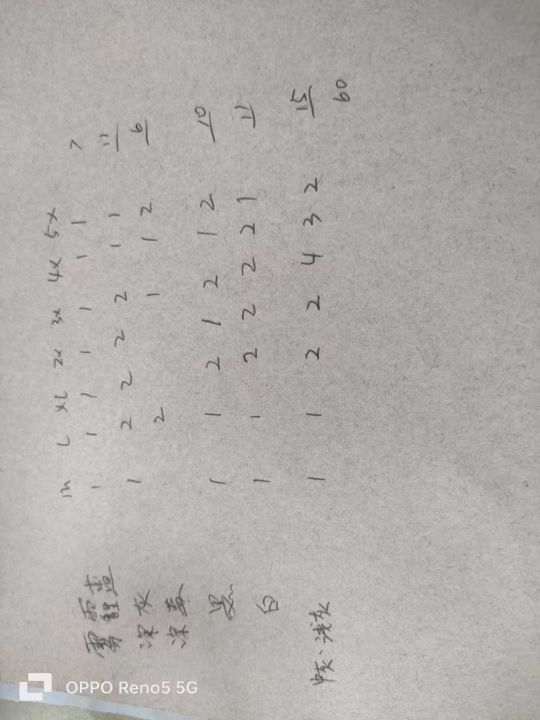 m L XL 2x 3x 4x 5x
雾霾蓝 1 1 1 1 1 1 1 7
深灰 1 2 2 2 2 1 1 11
深蓝 2 1 1 2 6
黑 1 1 2 1 2 1 2 10
白 1 1 2 2 2 2 1 11
浅灰 1 1 2 2 4 3 2 15
60
OPPO Reno5 5G